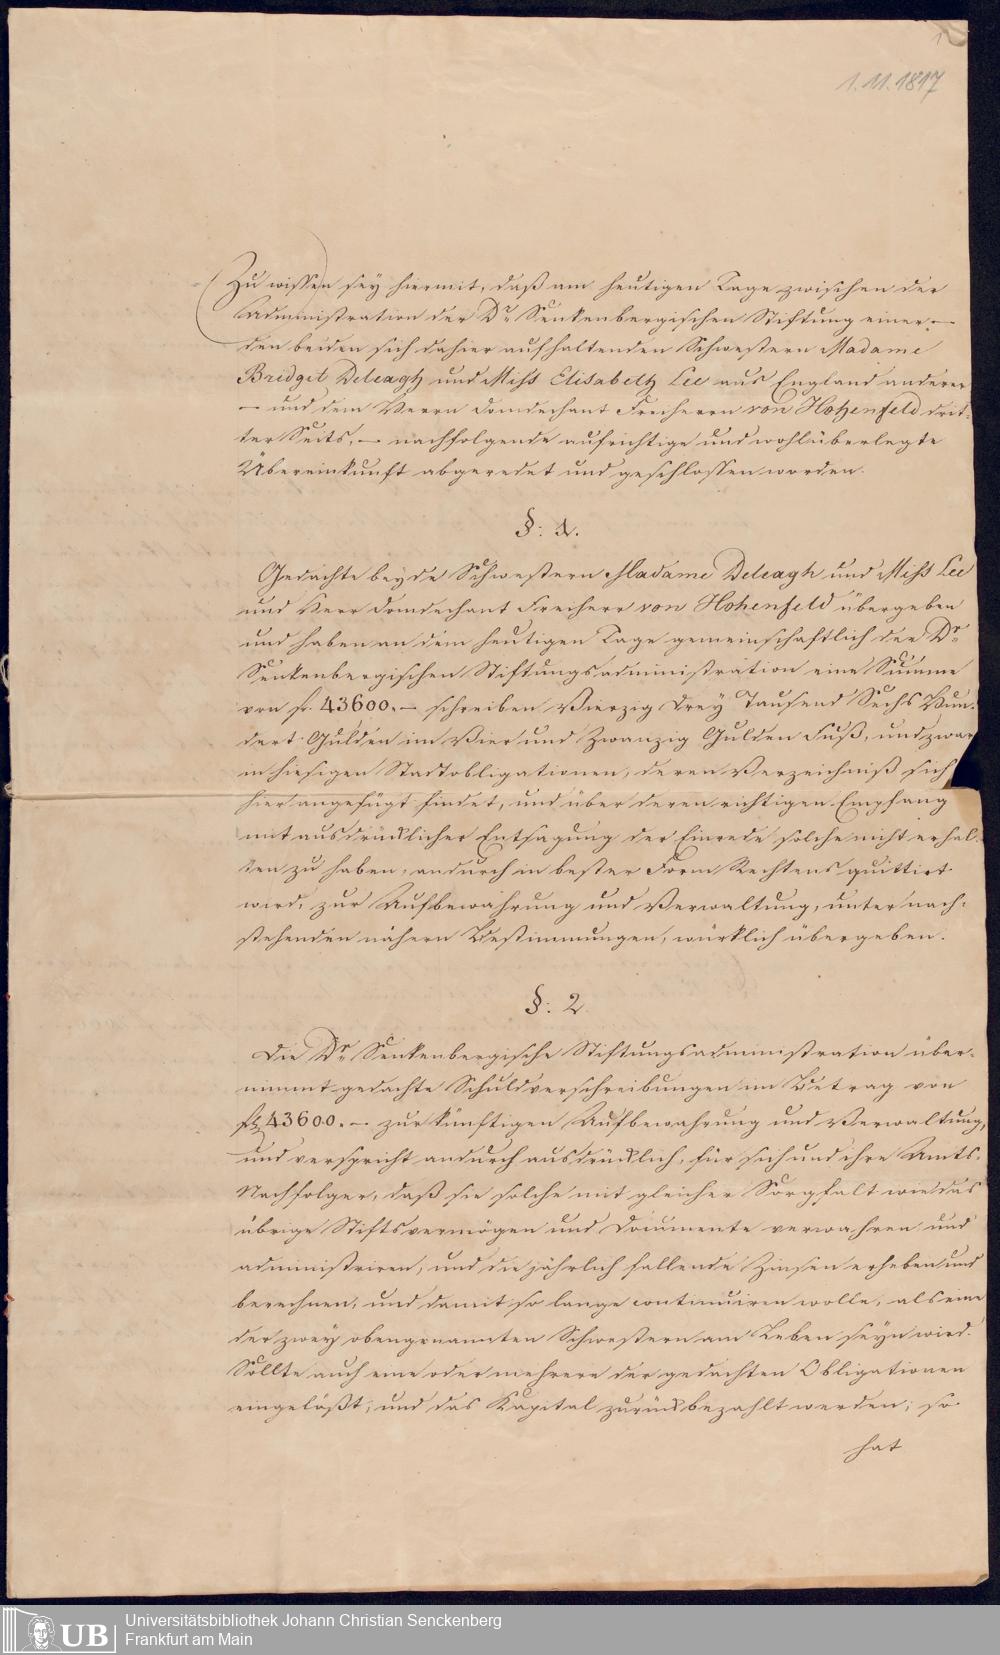 1
1.11.1817
Zu wissen sey hiermit, daß am heutigen Tage zwischen der
Administration der Dr Senkenbergischen Stiftung einer –
den beiden sich dahier aufhaltenden Schwestern Madame
Bridget Deleagh und Miss Elisabeth Lee aus England anderer
– und dem Herrn Domdechant Freiherrn von Hohenfeld drit-
ter Seits, – nachfolgende aufrichtige und wohlüberlegte
Übereinkunft abgeredet und geschlossen worden.
§: 1.
Gedachte beyde Schwestern Madame Deleagh und Miss Lee
und Herr Domdechant Freiherr von Hohenfeld übergeben
und haben an dem heutigen Tage gemeinschaftlich der Dr
Senkenbergischen Stiftungsadministration eine Summe
von fl. 43600.– schreiben Vierzig Drey Tausend Sechs Hun-
dert Gulden im Vier und Zwanzig Gulden Fuß, und zwar
in hiesigen Stadtobligationen, deren Verzeichniß sich
hier angefügt findet, und über deren richtigen Empfang
mit ausdrücklicher Entsagung der Einrede solche nicht erhal-
ten zu haben, andurch in bester Form Rechtens quittirt
wird, zur Aufbewahrung und Verwaltung, unter nach-
stehenden nähern Bestimmungen, würklich übergeben.
§: 2.
Die Dr Senkenbergische Stiftungsadministration über-
nimmt gedachte Schuldverschreibungen im Betrag von
fl. 43600.– zur künftigen Aufbewahrung und Verwaltung,
und verspricht andurch ausdrücklich, für sich und ihre Amts-
Nachfolger, daß sie solche mit gleicher Sorgfalt wie das
übrige Stiftsvermögen und Documente verwahren und
administriren, und die jährlich fallende Zinsen erheben und
berechnen, und damit so lange continuiren wolle, als eine
der zwey obengenannten Schwestern am Leben seyn wird.
Sollte auch eine oder mehrere der gedachten Obligationen
eingelößt, und das Kapital zurückbezahlt werden, so
hat
UB
Universitätsbibliothek Johann Christian Senckenberg
Frankfurt am Main